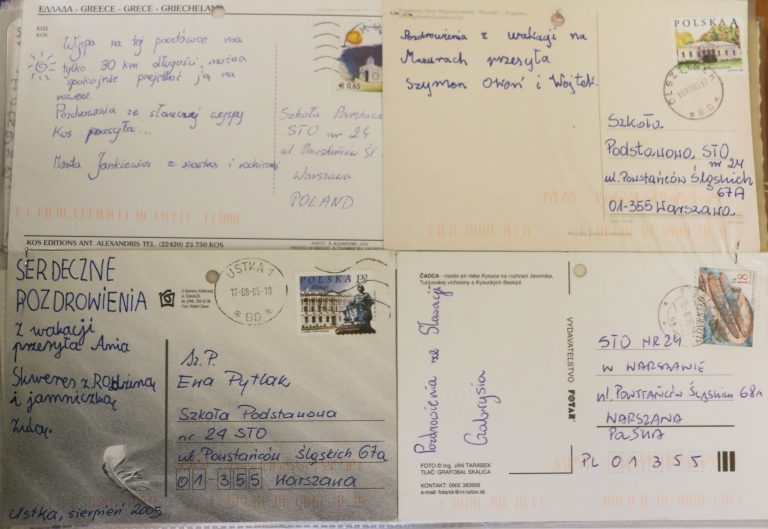 ΕΛΛΑΔΑ - GREECE - GRECE - GRIECHELAND
KΩΣ
KOS
Wyspa na tej pocztówce ma
tylko 30 km długości, można
spokojnie przejechać ją na
rowerze.
Pozdrowienia ze słonecznej wyspy
Kos przesyła...
Marta Jankiewicz z siostrą i rodzicami
€ 0,65
Szkoła Podstawowa
STO nr 24
ul. Powstańców Śl
Warszawa
POLAND
KOS EDITIONS ANT. ALEXANDRIS TEL. (22420) 23.750 KOS
Pozdrowienia z wakacji na
Mazurach przesyła
Szymon Owoń i Wojtek.
POLSKA A
Szkoła
Podstawowa STO
nr 24
ul. Powstańców Śląskich
67A
01-355 Warszawa
SERDECZNE
POZDROWIENIA
z wakacji
przesyła Ania
Skweres z Rodziną
i jamniczką
Zulą.
Ustka, sierpień 2005
USTKA 1
17-08-05-13
*BD*
POLSKA 1,30
Sz. P.
Ewa Pytlak
Szkoła Podstawowa
nr 24 STO
ul. Powstańców Śląskich 67a
01 355 Warszawa
ČADCA - mesto pri rieke Kysuca na rozhraní Javorníka,
Turzovskej vrchoviny a Kysuckých Beskýd
Pozdrowienia ze Słowacji
Gabrysia
VYDAVATEĽSTVO FOTAR
FOTO © Ing. JÁN TARÁBEK
TLAČ: GRAFOBAL SKALICA
KONTAKT: 0905 383958
STO NR 24
W WARSZAWIE
ul. POWSTAŃCÓW ŚLĄSKICH 68A
WARSZAWA
POLSKA
PL 01355